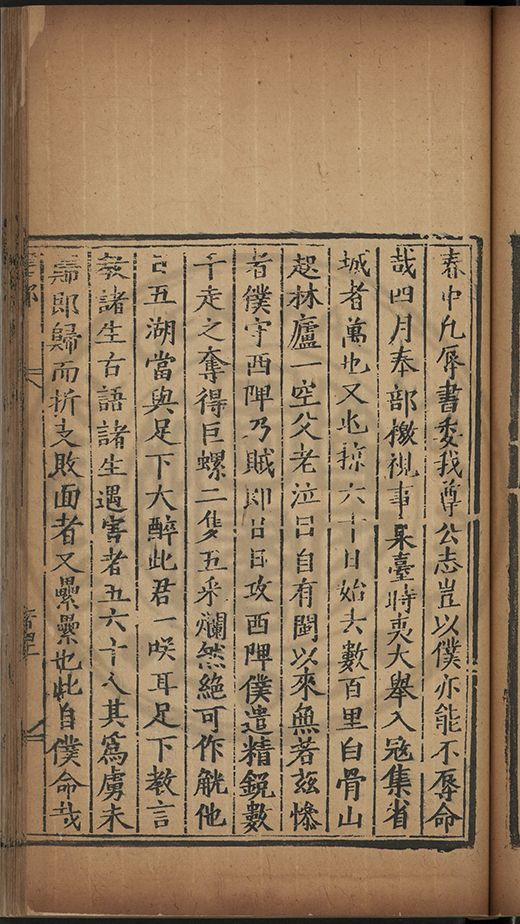 春中凡辱書委我尊公志豈以僕亦能不辱命
哉四月奉部檄視事臬臺時夷大舉入冦集省
城者萬也又兆掠六十日始去數百里白骨山
起林廬一空父老泣曰自有閩以來無若玆慘
者僕守西陴乃賊即日日攻西陴僕遣精銳數
千走之奪得巨螺二隻五采斕然絕可作觥他
日五湖當與足下大醉此君一咲耳足下教言
教諸生古語諸生遇害者五六十人其爲虜未
歸即歸而折支敗面者又纍纍也此自僕命哉